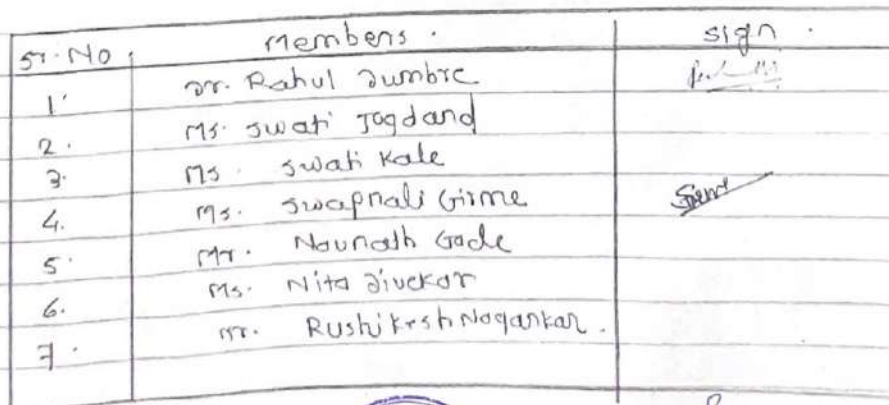 Sr. No. Members. Sign.
1. Dr. Rahul Dumbre
2. Ms. Swati Jagdand
3. Ms. Swati Kale
4. Ms. Swapnali Girme
5. Mr. Navnath Gade
6. Ms. Nita Divekar
7. Mr. Rushikesh Nagarkar.